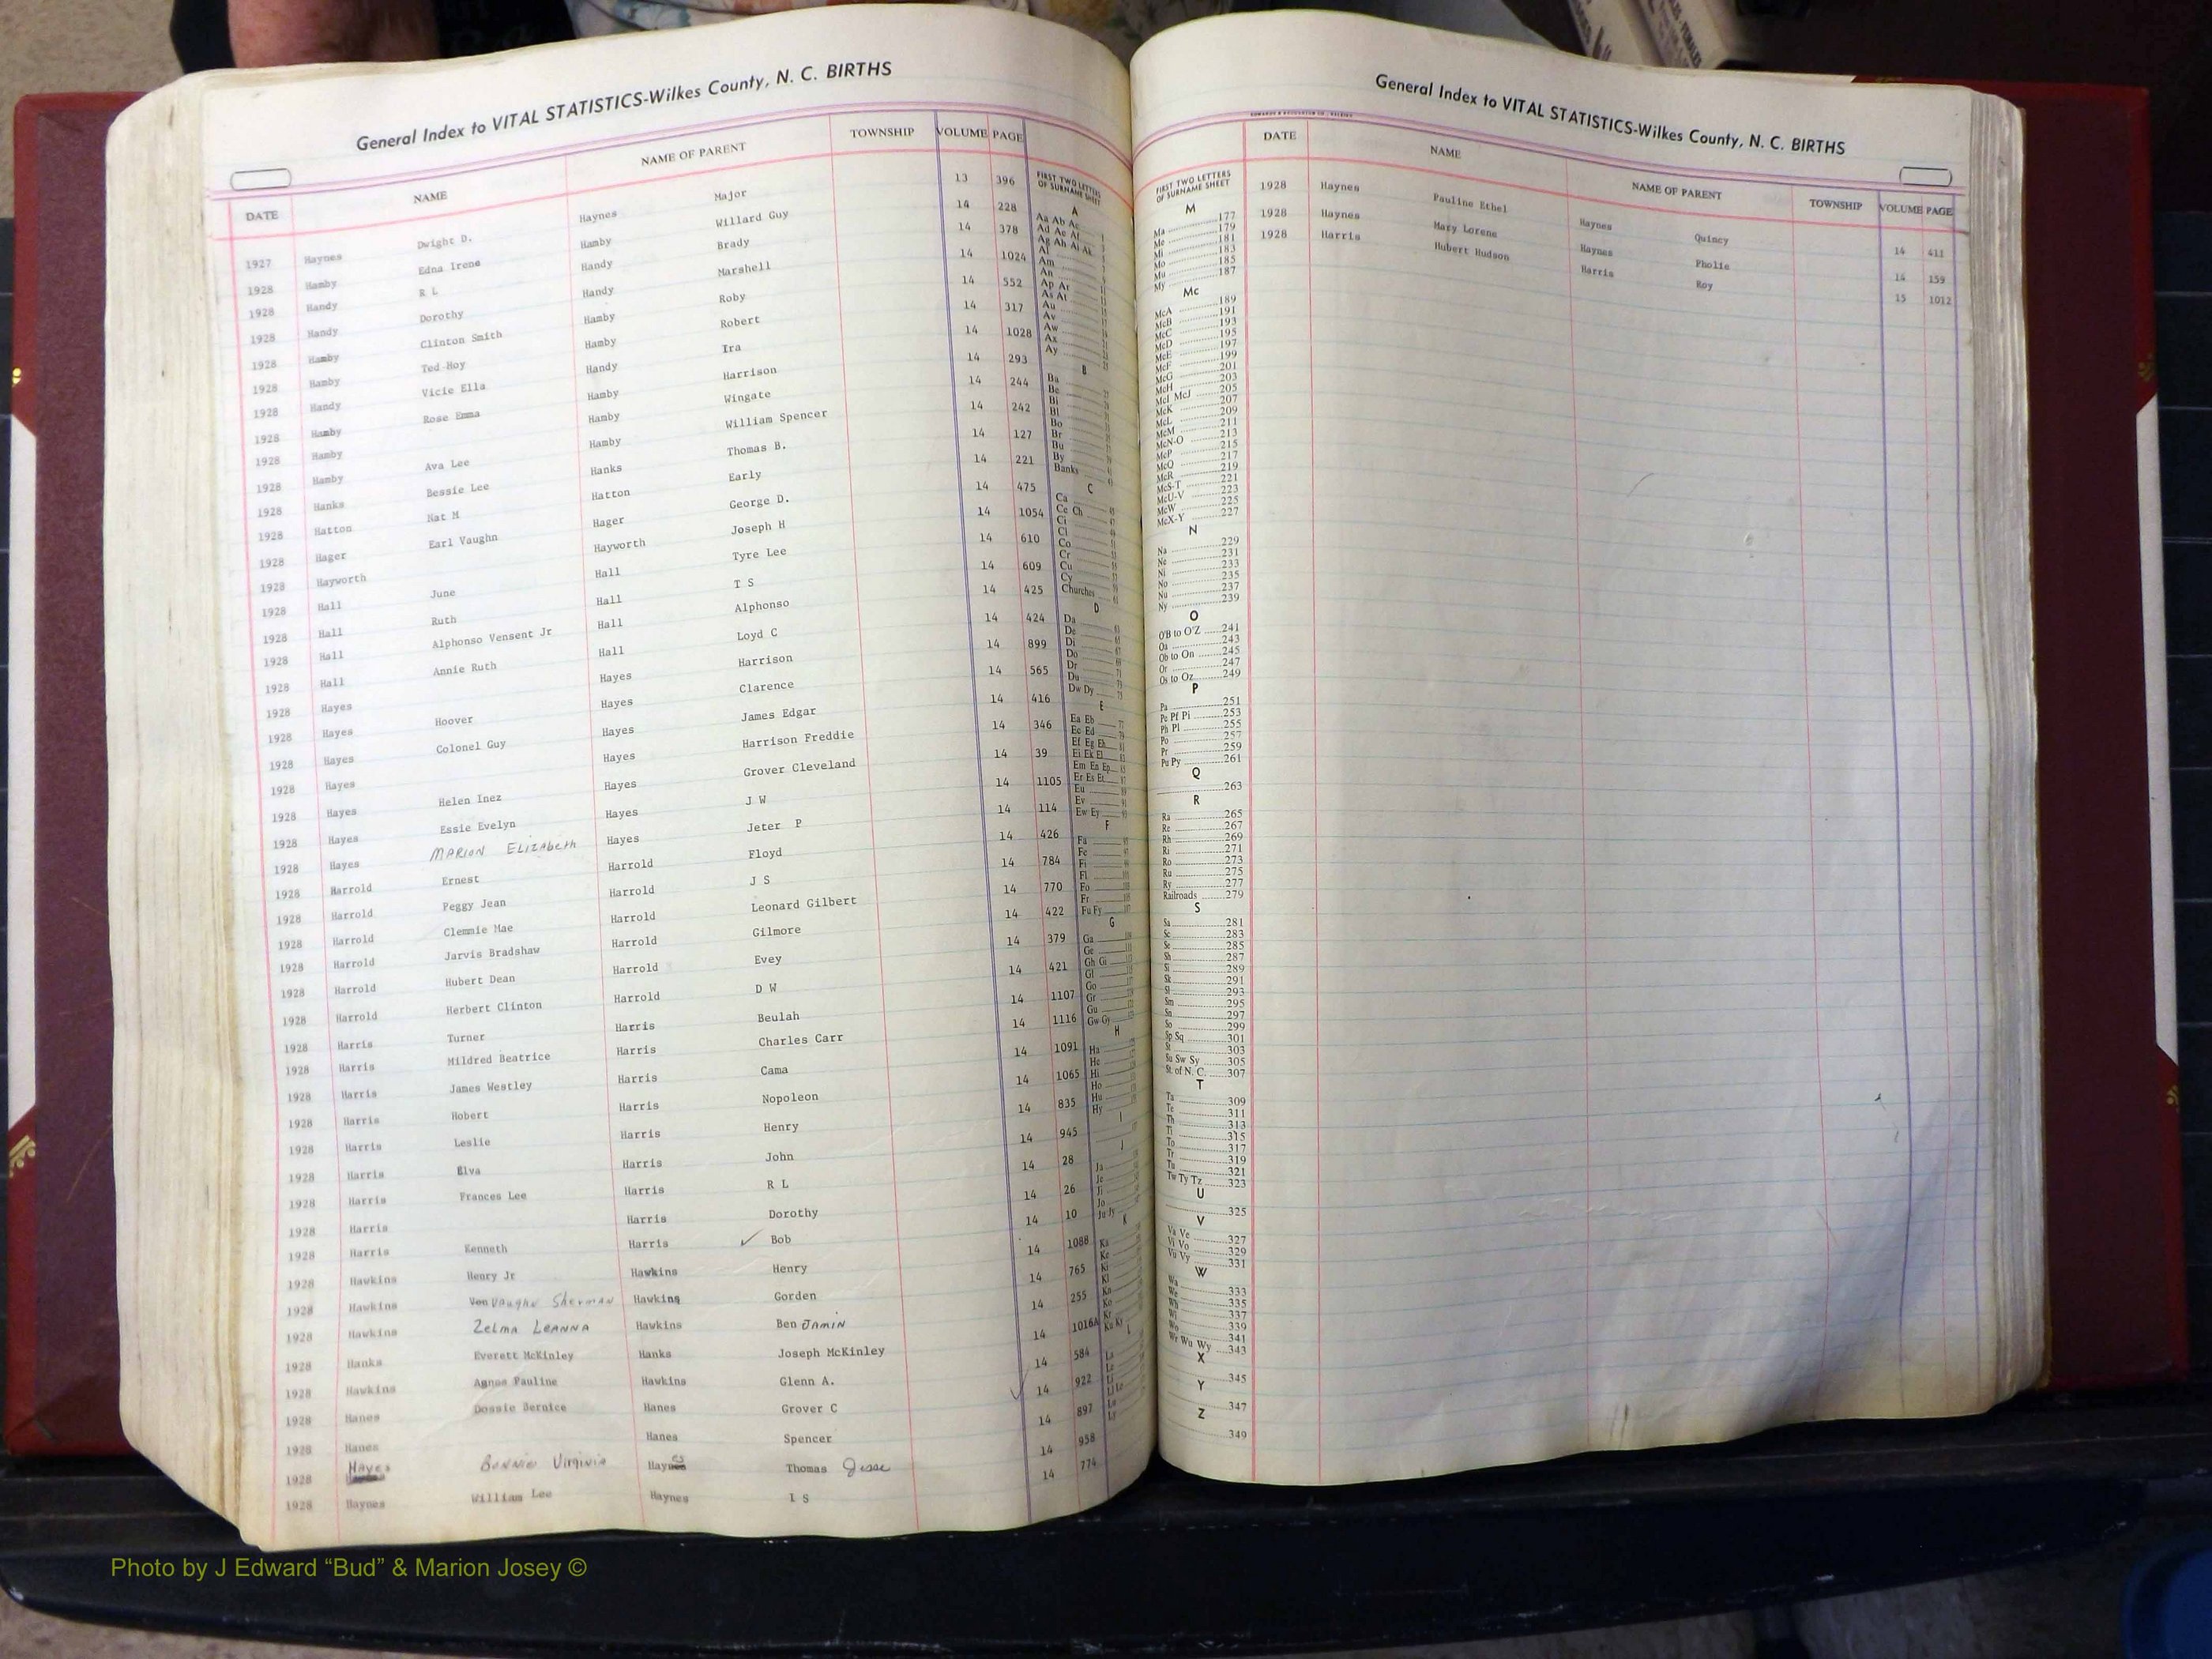 General Index to VITAL STATISTICS-Wilkes County, N. C. BIRTHS
DATE NAME NAME OF PARENT TOWNSHIP VOLUME PAGE
1927 Haynes Dwight D. Haynes Major 13 396
1928 Hamby Edna Irene Hamby Willard Guy 14 228
1928 Handy R L Handy Brady 14 378
1928 Handy Dorothy Handy Marshell 14 1024
1928 Hamby Clinton Smith Hamby Roby 14 552
1928 Hamby Ted Roy Hamby Robert 14 317
1928 Handy Vicie Ella Handy Ira 14 1028
1928 Hamby Rose Emma Hamby Harrison 14 293
1928 Hamby Hamby Wingate 14 244
1928 Hamby Ava Lee Hamby William Spencer 14 242
1928 Hanks Bessie Lee Hanks Thomas B. 14 127
1928 Hatton Nat M Hatton Early 14 221
1928 Hager Earl Vaughn Hager George D. 14 475
1928 Hayworth Hayworth Joseph H 14 1054
1928 Hall June Hall Tyre Lee 14 610
1928 Hall Ruth Hall T S 14 609
1928 Hall Alphonso Vensent Jr Hall Alphonso 14 425
1928 Hall Annie Ruth Hall Loyd C 14 424
1928 Hayes Hayes Harrison 14 899
1928 Hayes Hoover Hayes Clarence 14 565
1928 Hayes Colonel Guy Hayes James Edgar 14 416
1928 Hayes Hayes Harrison Freddie 14 346
1928 Hayes Helen Inez Hayes Grover Cleveland 14 39
1928 Hayes Essie Evelyn Hayes J W 14 1105
1928 Hayes MARION ELIZABETH Hayes Jeter P 14 114
1928 Harrold Ernest Harrold Floyd 14 426
1928 Harrold Peggy Jean Harrold J S 14 784
1928 Harrold Clemmie Mae Harrold Leonard Gilbert 14 770
1928 Harrold Jarvis Bradshaw Harrold Gilmore 14 422
1928 Harrold Hubert Dean Harrold Evey 14 379
1928 Harrold Herbert Clinton Harrold D W 14 421
1928 Harris Turner Harris Beulah 14 1107
1928 Harris Mildred Beatrice Harris Charles Carr 14 1116
1928 Harris James Westley Harris Cama 14 1091
1928 Harris Robert Harris Nopoleon 14 1065
1928 Harris Leslie Harris Henry 14 835
1928 Harris Elva Harris John 14 945
1928 Harris Frances Lee Harris R L 14 28
1928 Harris Harris Dorothy 14 26
1928 Harris Kenneth Harris ✓ Bob 14 10
1928 Hawkins Henry Jr Hawkins Henry 14 1088
1928 Hawkins Von Vaughn Sherman Hawkins Gorden 14 765
1928 Hawkins Zelma LEANNA Hawkins Ben JAMIN 14 255
1928 Hanks Everett McKinley Hanks Joseph McKinley 14 1016A
1928 Hawkins Agnes Pauline Hawkins Glenn A. 14 584
1928 Hanes Dossie Bernice Hanes Grover C ✓ 14 922
1928 Hanes Hanes Spencer 14 897
1928 Hayes Bonnie Virginia Hayes Thomas Jesse 14 958
1928 Haynes William Lee Haynes I S 14 774
FIRST TWO LETTERS
OF SURNAME SHEET
A
Aa Ab Ac
Ad Ae Af
Ag Ah Ai Ak
Al
Am
An
Ap Ar
As At
Au
Av
Aw
Ax
Ay
B
Ba
Be
Bi
Bl
Bo
Br
Bu
By
Banks
C
Ca
Ce Ch
Ci
Cl
Co
Cr
Cu
Cy
Churches
D
Da
De
Di
Do
Dr
Du
Dw Dy
E
Ea Eb
Ec Ed
Ef Eg Eh
Ei Ek El
Em En Ep
Er Es Et
Eu
Ev
Ew Ey
F
Fa
Fe
Fi
Fl
Fo
Fr
Fu Fy
G
Ga
Ge
Gh Gi
Gl
Go
Gr
Gu
Gw Gy
H
Ha
He
Hi
Ho
Hu
Hy
I
J
Ja
Je
Ji
Jo
Ju Jy
K
Ka
Ke
Ki
Kl
Kn
Ko
Kr
Ku Ky
L
La
Le
Li
Ll Lo
Lu
Ly
General Index to VITAL STATISTICS-Wilkes County, N. C. BIRTHS
FIRST TWO LETTERS
OF SURNAME SHEET
M
Ma 177
Me 179
Mi 181
Mo 183
Mu 185
My 187
Mc
McA 189
McB 191
McC 193
McD 195
McE 197
McF 199
McG 201
McH 203
McI McJ 205
McK 207
McL 209
McM 211
McN-O 213
McP 215
McQ 217
McR 219
McS-T 221
McU-V 223
McW 225
McX-Y 227
N
Na 229
Ne 231
Ni 233
No 235
Nu 237
Ny 239
O
O'B to O'Z 241
Oa 243
Ob to On 245
Or 247
Os to Oz 249
P
Pa 251
Pe Pf Pi 253
Ph Pl 255
Po 257
Pr 259
Pu Py 261
Q
263
R
Ra 265
Re 267
Rh 269
Ri 271
Ro 273
Ru 275
Ry 277
Railroads 279
S
Sa 281
Sc 283
Se 285
Sh 287
Si 289
Sk 291
Sl 293
Sm 295
Sn 297
So 299
Sp Sq 301
St 303
Su Sw Sy 305
St. of N. C. 307
T
Ta 309
Te 311
Th 313
Ti 315
To 317
Tr 319
Tu 321
Tw Ty Tz 323
U
325
V
Va Ve 327
Vi Vo 329
Vu Vy 331
W
Wa 333
We 335
Wh 337
Wi 339
Wo 341
Wr Wu Wy 343
X
345
Y
347
Z
349
DATE NAME NAME OF PARENT TOWNSHIP VOLUME PAGE
1928 Haynes Pauline Ethel Haynes Quincy 14 411
1928 Haynes Mary Lorene Haynes Pholie 14 159
1928 Harris Hubert Hudson Harris Roy 15 1012
Photo by J Edward “Bud” & Marion Josey ©